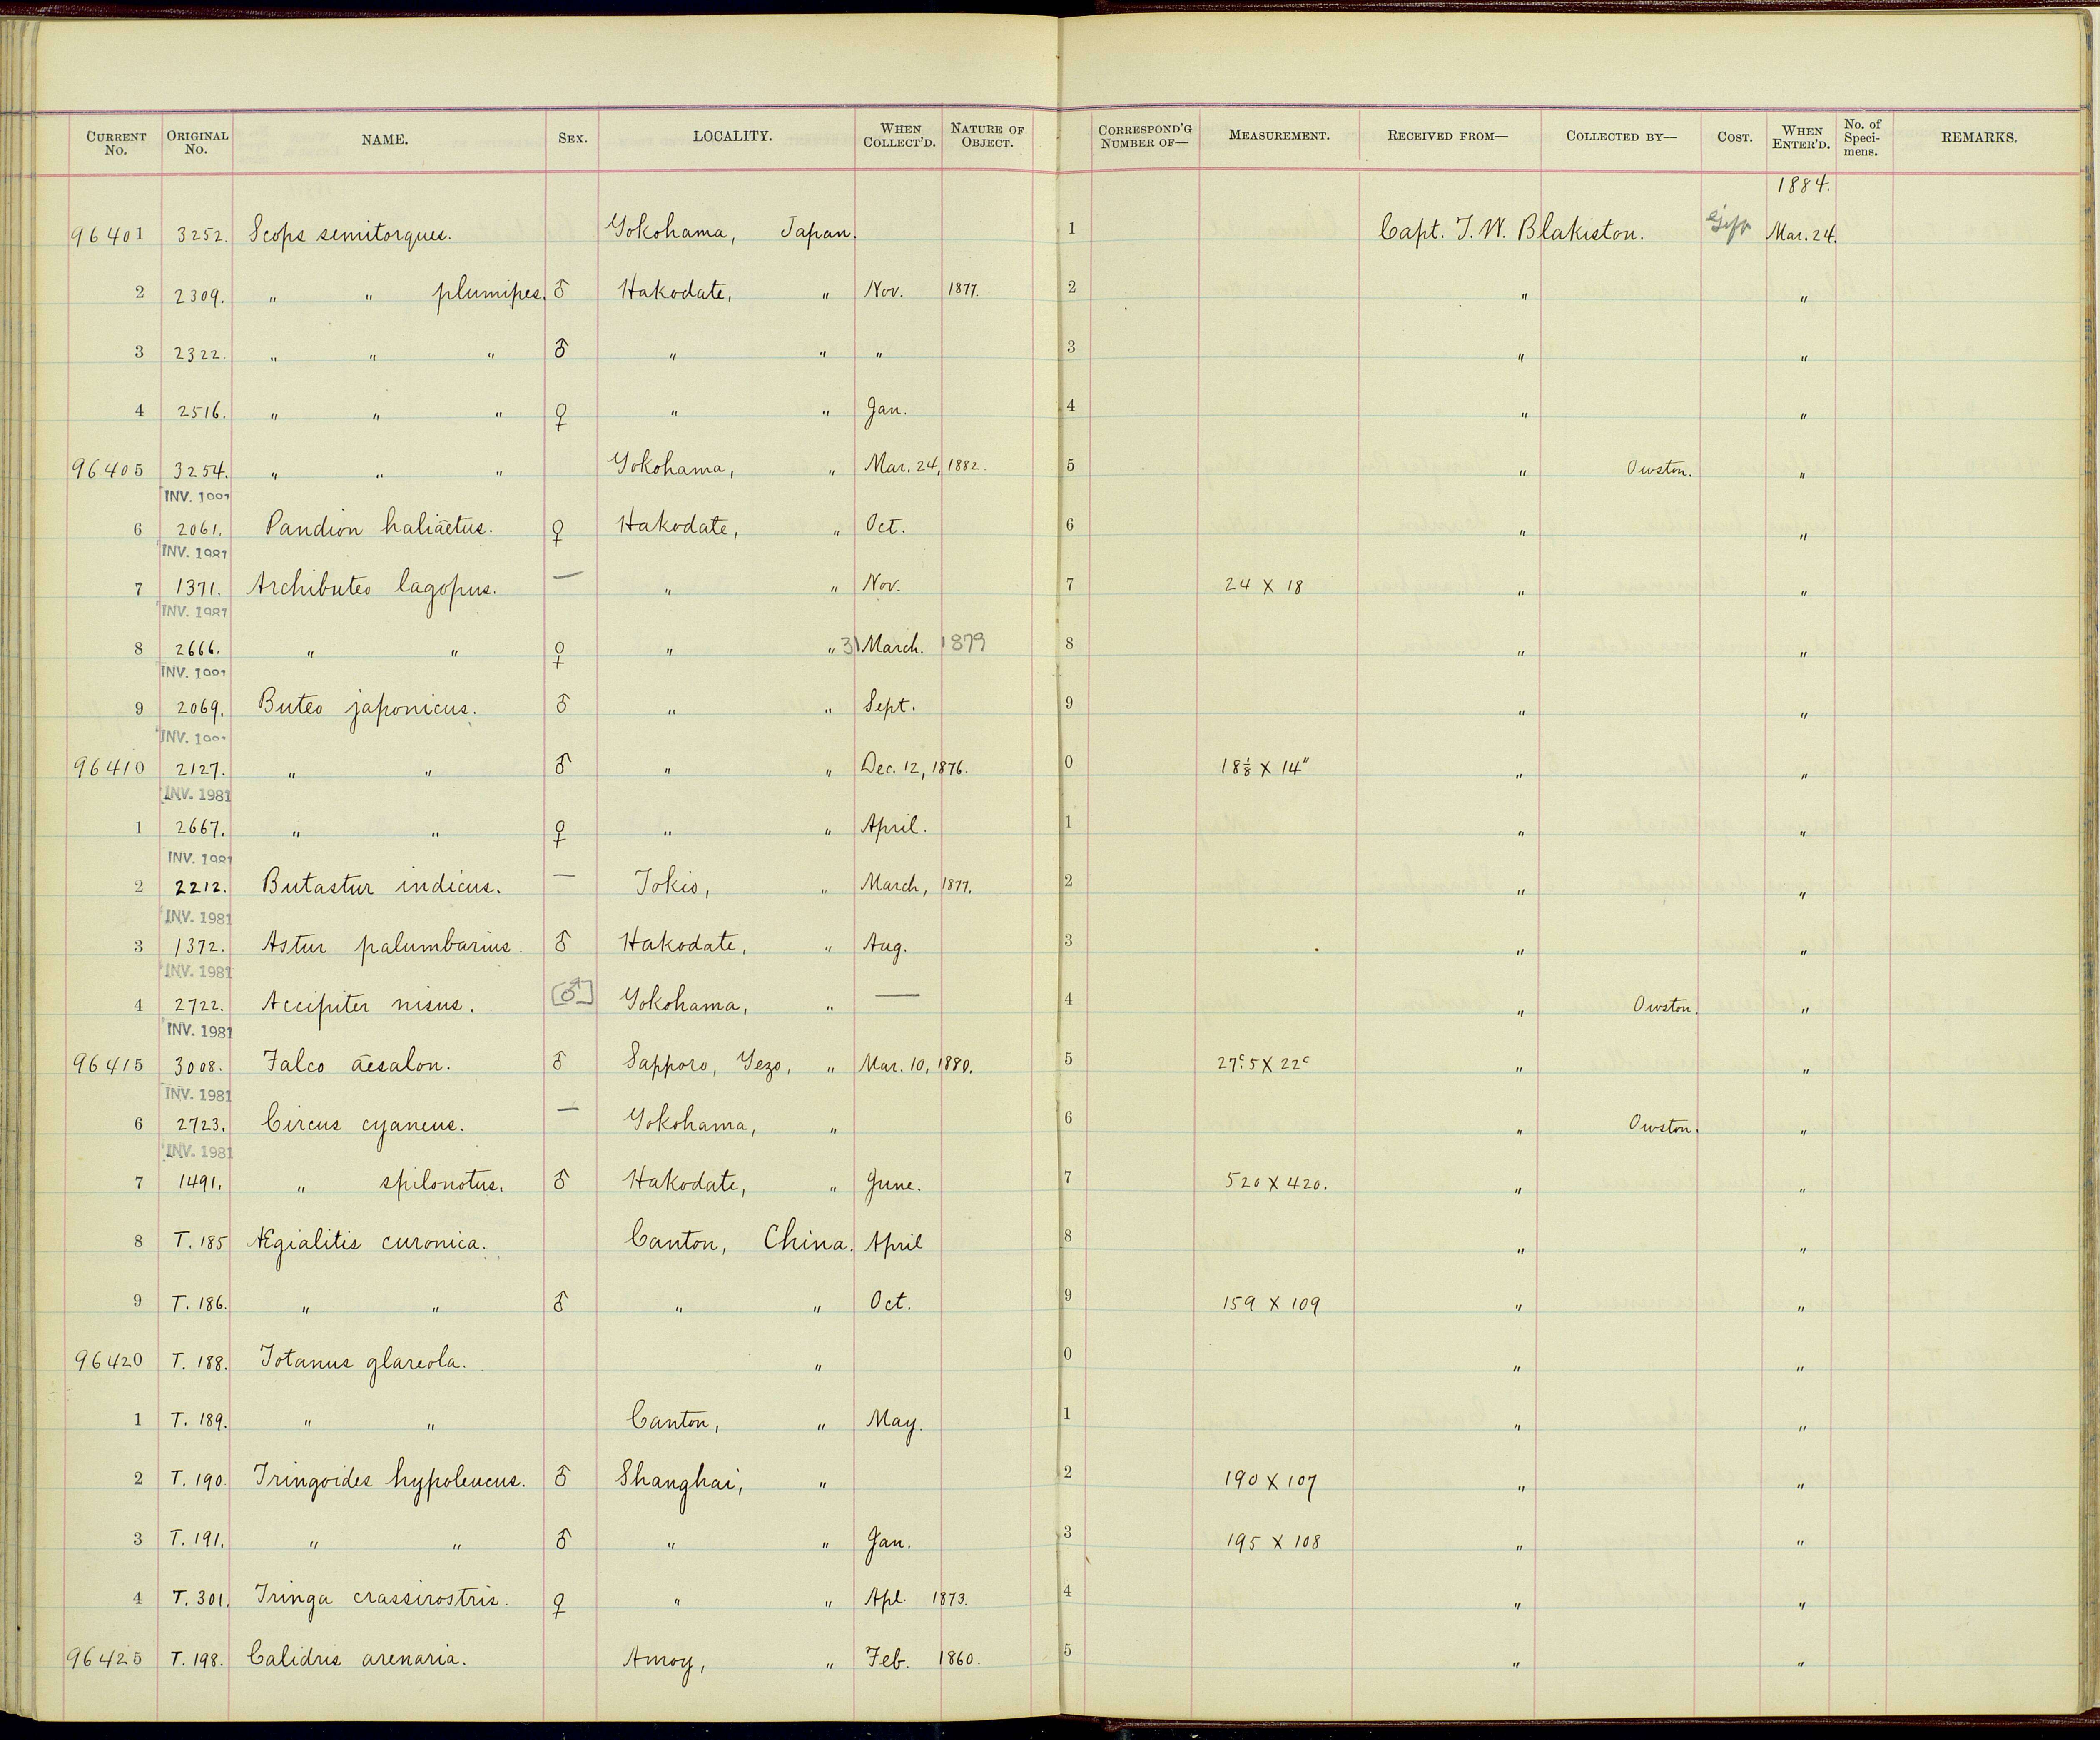 CURRENT No. ORIGINAL No. NAME. SEX. LOCALITY. WHEN COLLECT'D. NATURE OF OBJECT. CORRESPOND'G NUMBER OF— MEASUREMENT. RECEIVED FROM— COLLECTED BY— COST. WHEN ENTER'D. No. of Speci-mens. REMARKS.
1884.
96401 3252. Scops semitorques. Yokohama, Japan. 1 Capt. T. W. Blakiston. Gift Mar. 24.
2 2309. " " plumipes. ♂ Hakodate, " Nov. 1877. 2 " "
3 2322. " " " ♂ " " " 3 " "
4 2516. " " " ♀ " " Jan. 4 " "
96405 3254. " " " Yokohama, " Mar. 24, 1882. 5 " Owston. "
INV. 1981
6 2061. Pandion haliaetus. ♀ Hakodate, " Oct. 6 " "
INV. 1981
7 1371. Archibuteo lagopus. — " " Nov. 7 24 X 18 " "
INV. 1981
8 2666. " " ♀ " " 31 March. 1879 8 " "
INV. 1981
9 2069. Buteo japonicus. ♂ " " Sept. 9 " "
INV. 1981
96410 2127. " " ♂ " " Dec. 12, 1876. 0 18⅛ X 14" " "
INV. 1981
1 2667. " " ♀ " " April. 1 " "
INV. 1981
2 2212. Butastur indicus. — Tokio, " March, 1877. 2 " "
INV. 1981
3 1372. Astur palumbarius. ♂ Hakodate, " Aug. 3 " "
INV. 1981
4 2722. Accipiter nisus. [♂] Yokohama, " — 4 " Owston. "
INV. 1981
96415 3008. Falco aesalon. ♂ Sapporo, Yezo, " Mar. 10, 1880. 5 27ᶜ.5 X 22ᶜ " "
INV. 1981
6 2723. Circus cyaneus. — Yokohama, " 6 " Owston. "
INV. 1981
7 1491. " spilonotus. ♂ Hakodate, " June. 7 520 X 420. " "
8 T. 185 Ægialitis curonica. Canton, China. April 8 " "
9 T. 186. " " ♂ " " Oct. 9 159 X 109 " "
96420 T. 188. Totanus glareola. " 0 " "
1 T. 189. " " Canton, " May. 1 " "
2 T. 190. Tringoides hypoleucus. ♂ Shanghai, " 2 190 X 107 " "
3 T. 191. " " ♂ " " Jan. 3 195 X 108 " "
4 T. 301. Tringa crassirostris. ♀ " " Apl. 1873. 4 " "
96425 T. 198. Calidris arenaria. Amoy, " Feb. 1860. 5 " "